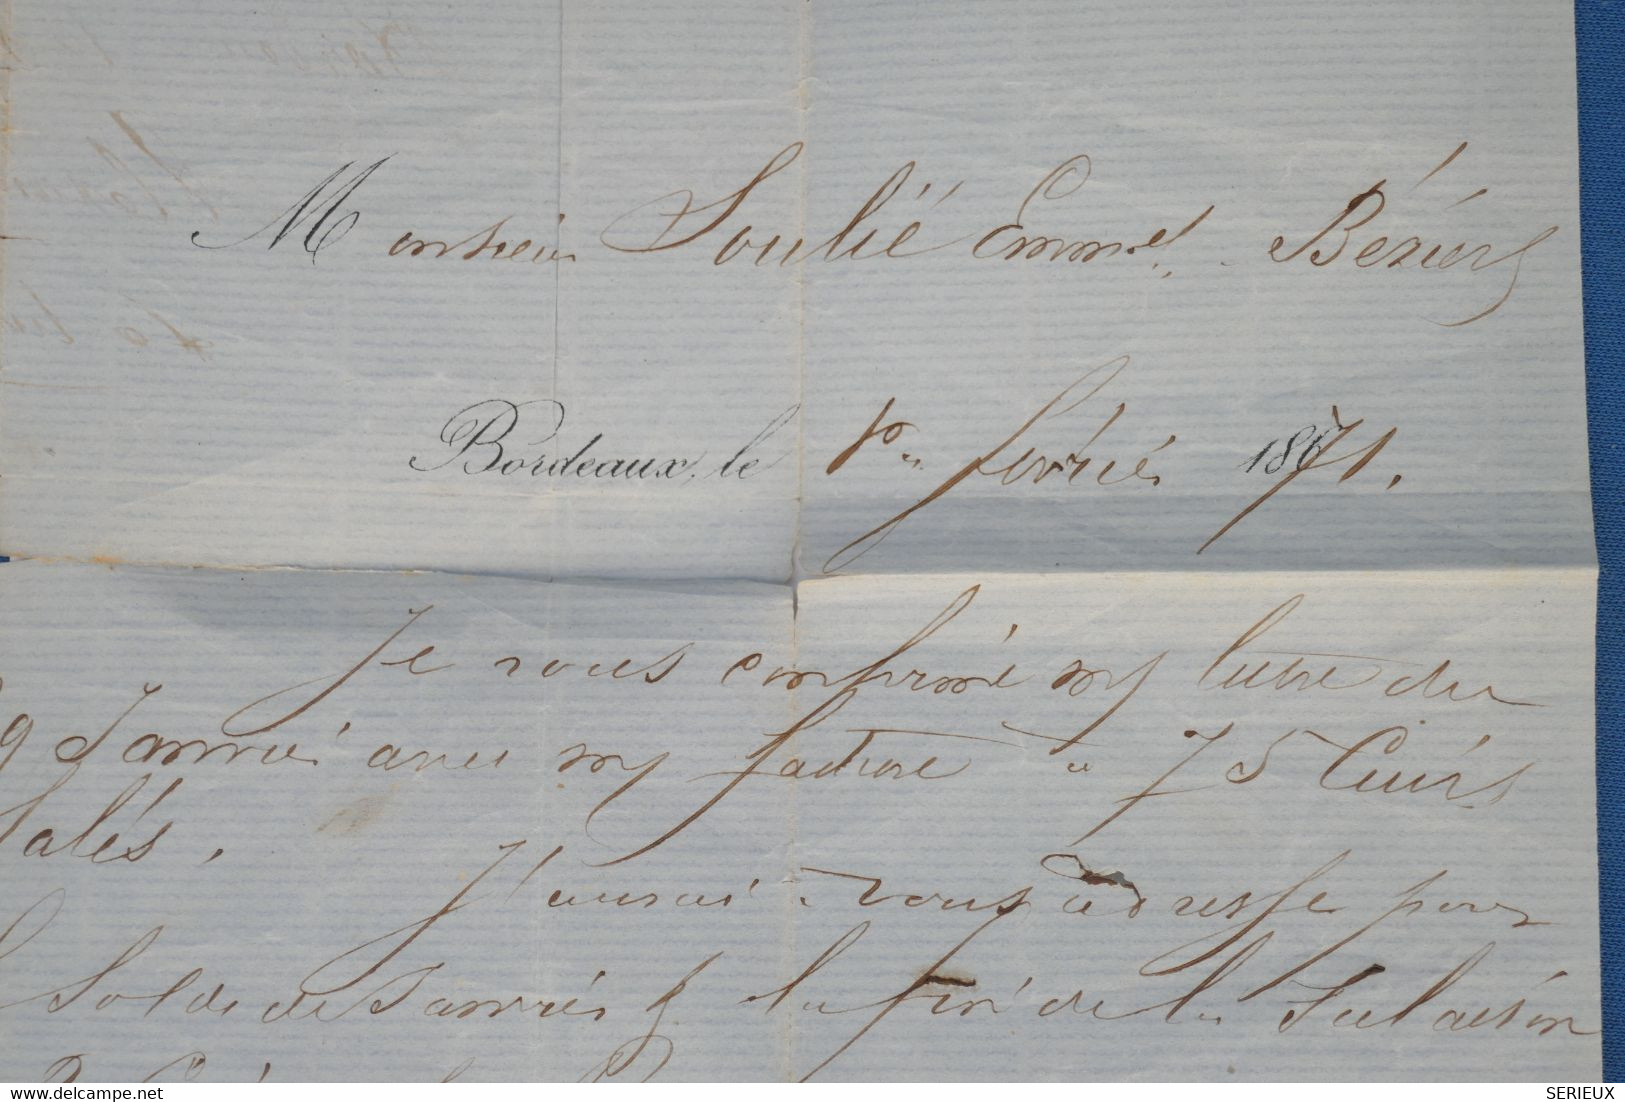 Monsieur Soulié Emmel. Béziers
Bordeaux, le 1er février 1871.
Je vous confirme ma lettre du
9 Janvier avec ma facture 75 Cuirs
Salés.
J'aurai à vous adresser pour
Solde de Janvier & la fin de la Salaison
SERIEUX